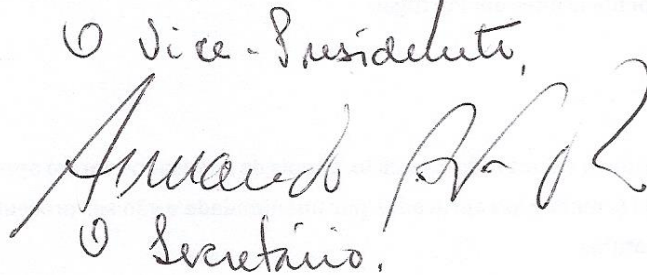 O Vice-Presidente,
Armando
O Secretário.